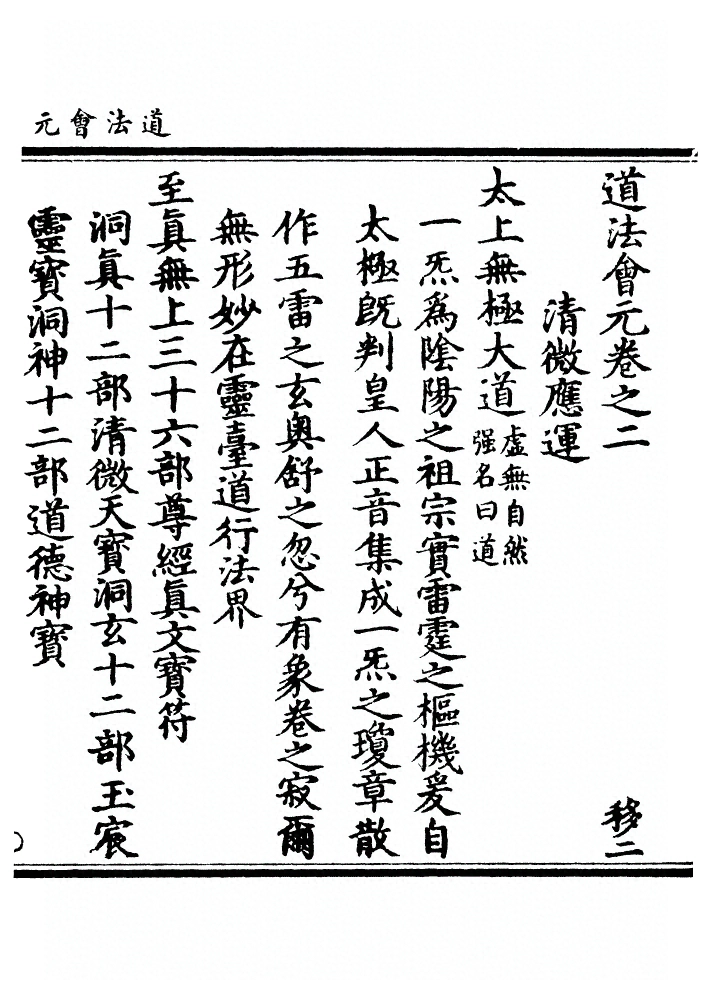 道法會元
道法會元卷之二
移二
清微應運
太上無極大道虛無自然
强名曰道
一炁爲陰陽之祖宗實雷霆之樞機爰自
太極旣判皇人正音集成一炁之瓊章散
作五雷之玄奥舒之忽兮有象卷之寂爾
無形妙在靈臺道行法界
至眞無上三十六部尊經眞文寶符
洞眞十二部清微天寶洞玄十二部玉宸
靈寶洞神十二部道德神寶